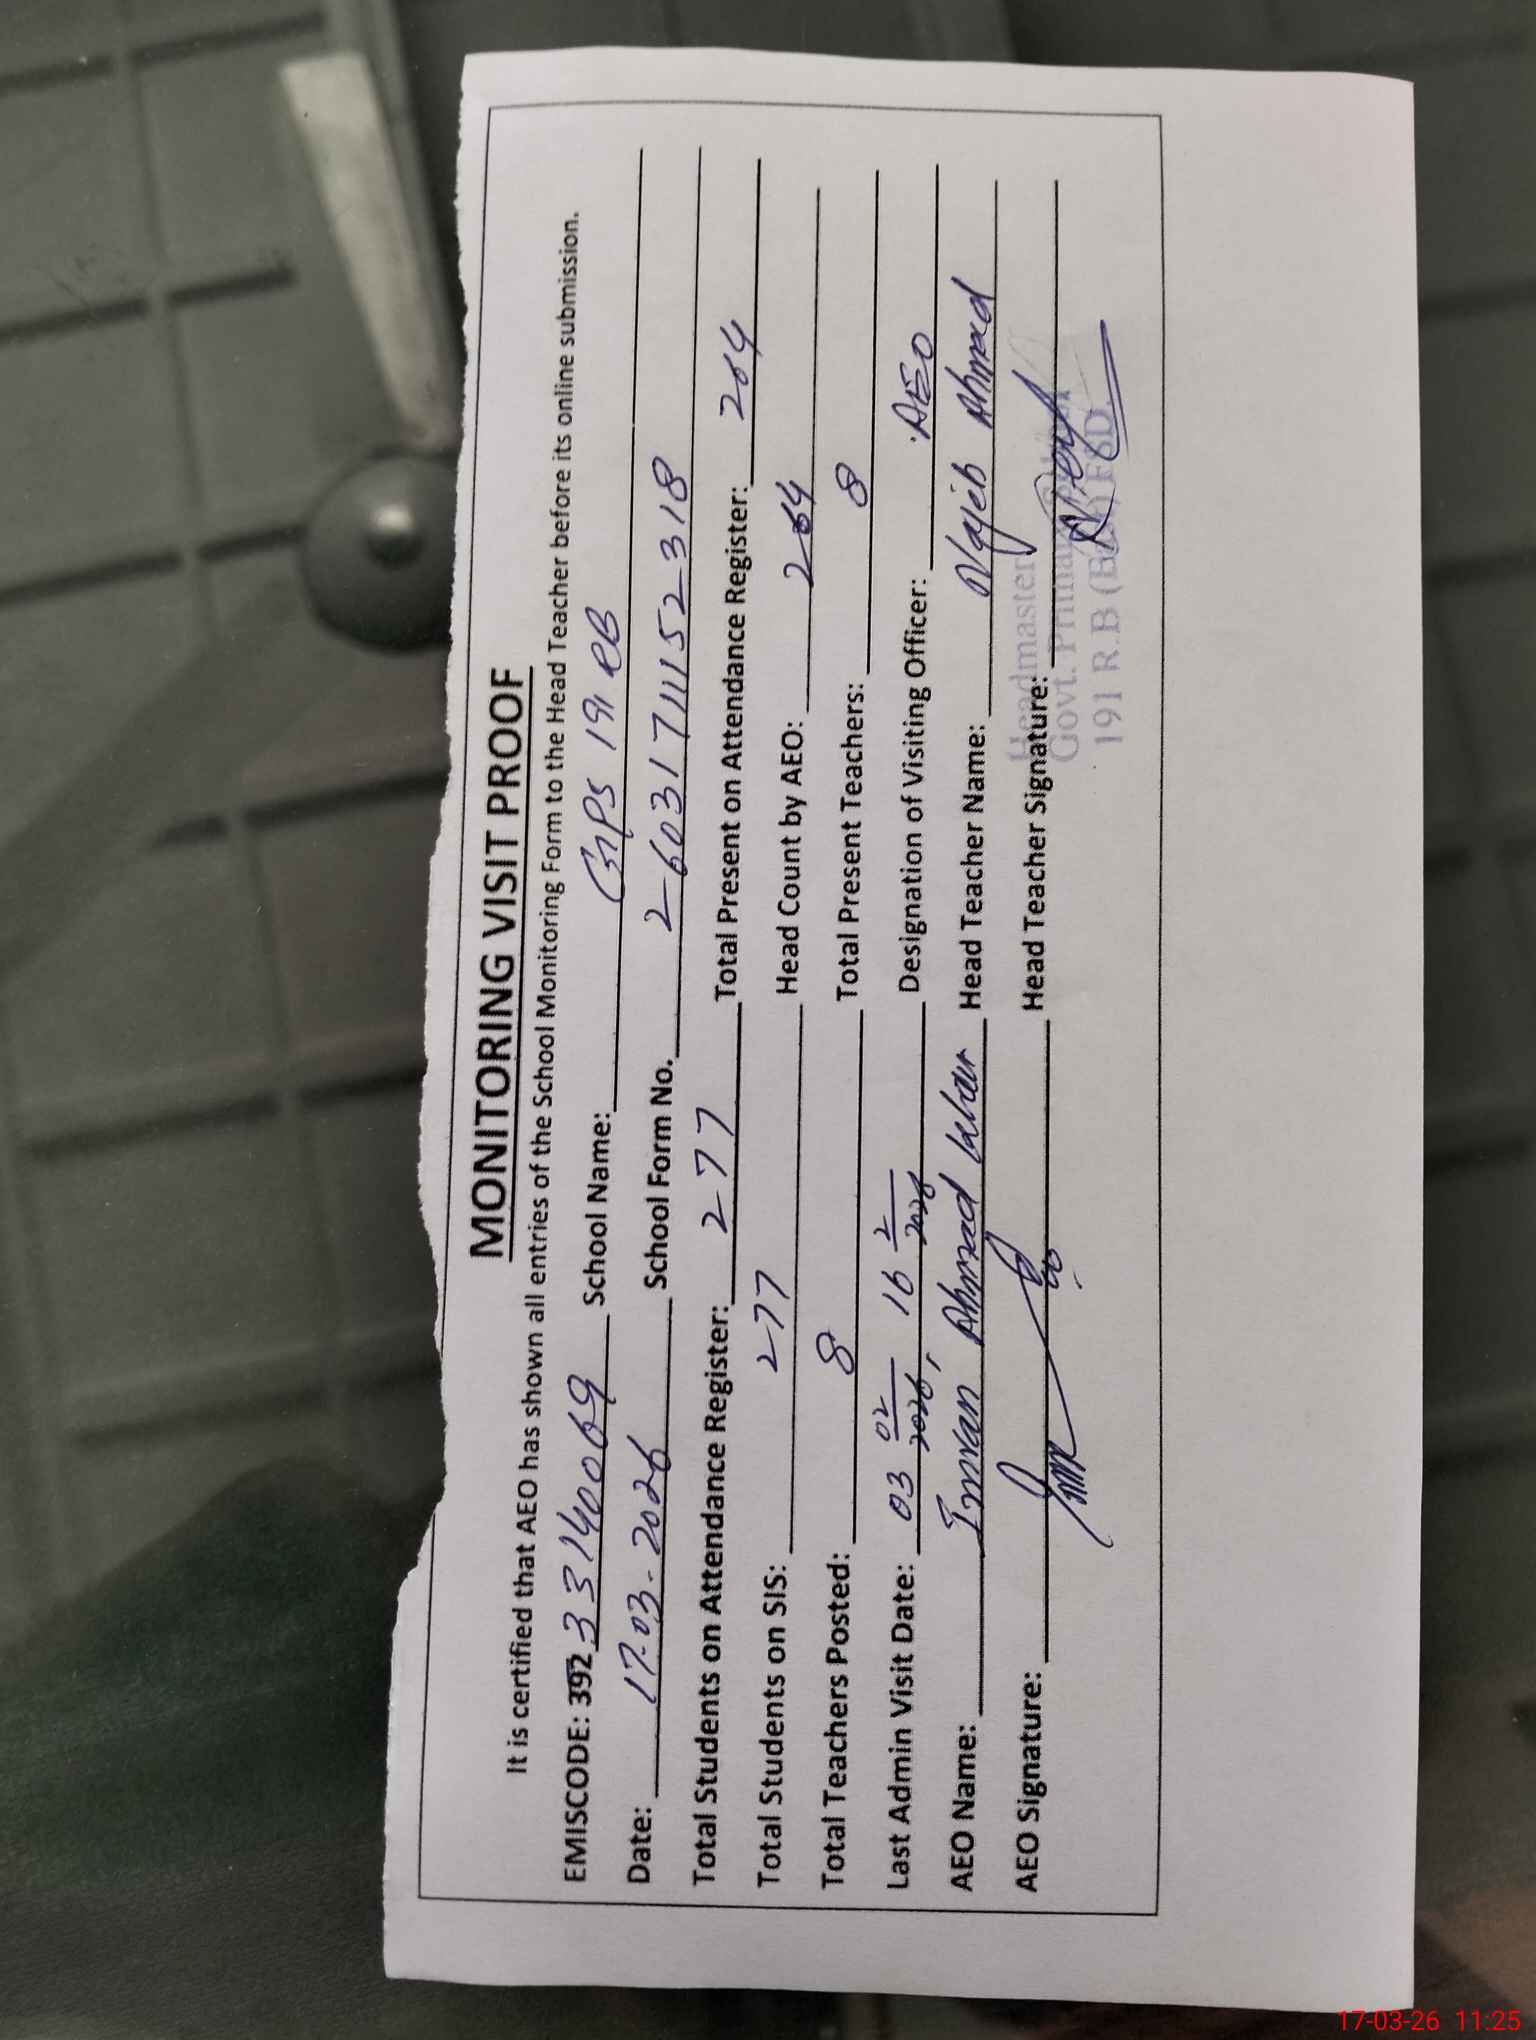 MONITORING VISIT PROOF
It is certified that AEO has shown all entries of the School Monitoring Form to the Head Teacher before its online submission.
EMISCODE: 392 33140069 School Name: GPS 191 RB
Date: 17-03-2026 School Form No. 260317111152318
Total Students on Attendance Register: 277 Total Present on Attendance Register: 264
Total Students on SIS: 277 Head Count by AEO: 264
Total Teachers Posted: 8 Total Present Teachers: 8
Last Admin Visit Date: 03 02/2026, 16 2/2026 Designation of Visiting Officer: AEO
AEO Name: Imran Ahmad Head Teacher Name: Najeb Ahmad
AEO Signature: Head Teacher Signature:
Headmaster
Govt. Primary
191 R.B FSD.
17-03-26 11:25